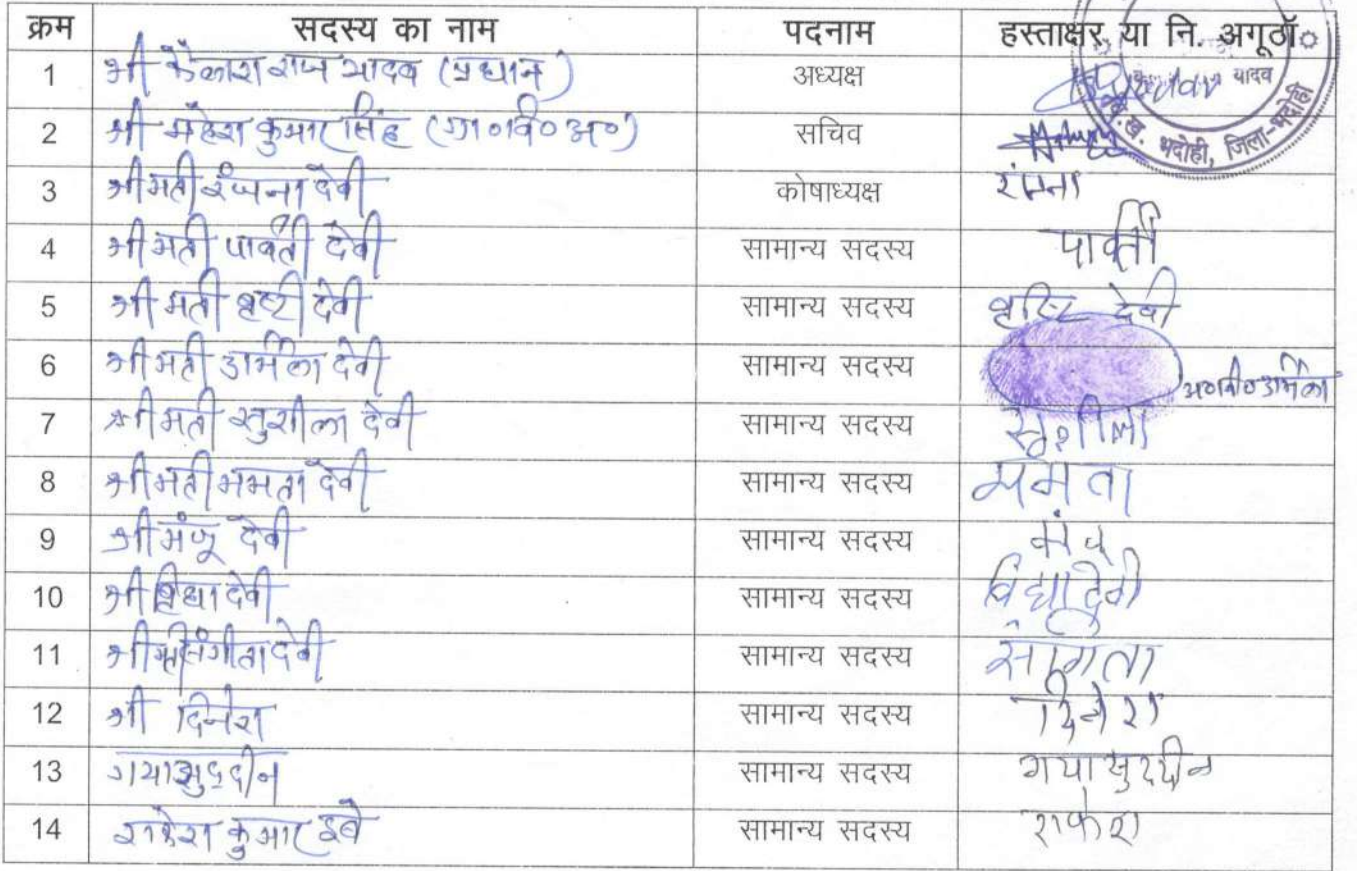 क्रम सदस्य का नाम पदनाम हस्ताक्षर या नि. अगूठॉ
1 श्री कैलाश राज यादव (प्रधान) अध्यक्ष यादव
2 श्री महेश कुमार सिंह (ग्रा०वि०अ०) सचिव
वि.ख. भदोही, जिला-भदोही
3 श्रीमती रंजना देवी कोषाध्यक्ष रंजना
4 श्रीमती पार्वती देवी सामान्य सदस्य पार्वती
5 श्रीमती देवी सामान्य सदस्य देवी
6 श्रीमती उर्मिला देवी सामान्य सदस्य उर्मिला
7 श्रीमती सुशीला देवी सामान्य सदस्य सुशीला
8 श्रीमती ममता देवी सामान्य सदस्य ममता
9 श्री मंजू देवी सामान्य सदस्य
10 श्री देवी सामान्य सदस्य देवी
11 श्रीमती संगीता देवी सामान्य सदस्य
12 श्री दिनेश सामान्य सदस्य दिनेश
13 गयासुद्दीन सामान्य सदस्य गयासुद्दीन
14 राकेश कुमार दुबे सामान्य सदस्य राकेश